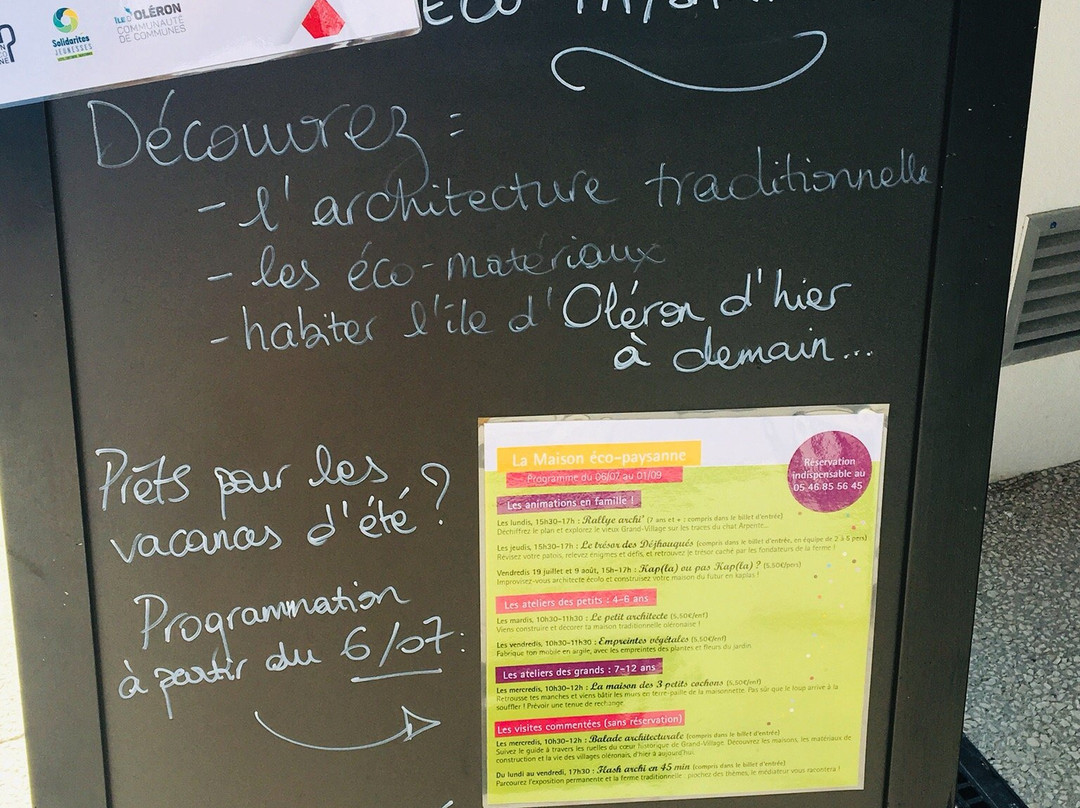 Solidarités
JEUNESSES
ÎLE D'OLÉRON
COMMUNAUTÉ
DE COMMUNES
Découvrez :
- l'architecture traditionnelle
- les éco-matériaux
- habiter l'île d'Oléron d'hier
à demain...
Prêts pour les
vacances d'été ?
Programmation
à partir du 6/07 :
La Maison éco-paysanne
Programme du 06/07 au 01/09
Réservation
indispensable au
05 46 85 56 45
Les animations en famille !
Les lundis, 15h30-17h : Rallye archi' (7 ans et + : compris dans le billet d'entrée)
Déchiffrez le plan et explorez le vieux Grand-Village sur les traces du chat Arpente...
Les jeudis, 15h30-17h : Le trésor des Déjhouqués (compris dans le billet d'entrée, en équipe de 2 à 5 pers)
Révisez votre patois, relevez énigmes et défis, et retrouvez le trésor caché par les fondateurs de la ferme !
Vendredis 19 juillet et 9 août, 15h-17h : Kap(la) ou pas Kap(la) ? (5,50€/pers)
Improvisez-vous architecte écolo et construisez votre maison du futur en kaplas !
Les ateliers des petits : 4-6 ans
Les mardis, 10h30-11h30 : Le petit architecte (5,50€/enf)
Viens construire et décorer ta maison traditionnelle oléronaise !
Les vendredis, 10h30-11h30 : Empreintes végétales (5,50€/enf)
Fabrique ton mobile en argile, avec les empreintes des plantes et fleurs du jardin.
Les ateliers des grands : 7-12 ans
Les mercredis, 10h30-12h : La maison des 3 petits cochons (5,50€/enf)
Retrousse tes manches et viens bâtir les murs en terre-paille de la maisonnette. Pas sûr que le loup arrive à la
souffler ! Prévoir une tenue de rechange.
Les visites commentées (sans réservation)
Les mercredis, 10h30-12h : Balade architecturale (compris dans le billet d'entrée)
Suivez le guide à travers les ruelles du cœur historique de Grand-Village. Découvrez les maisons, les matériaux de
construction et la vie des villages oléronais, d'hier à aujourd'hui.
Du lundi au vendredi, 17h30 : Flash archi en 45 min (compris dans le billet d'entrée)
Parcourez l'exposition permanente et la ferme traditionnelle : piochez des thèmes, le médiateur vous racontera !